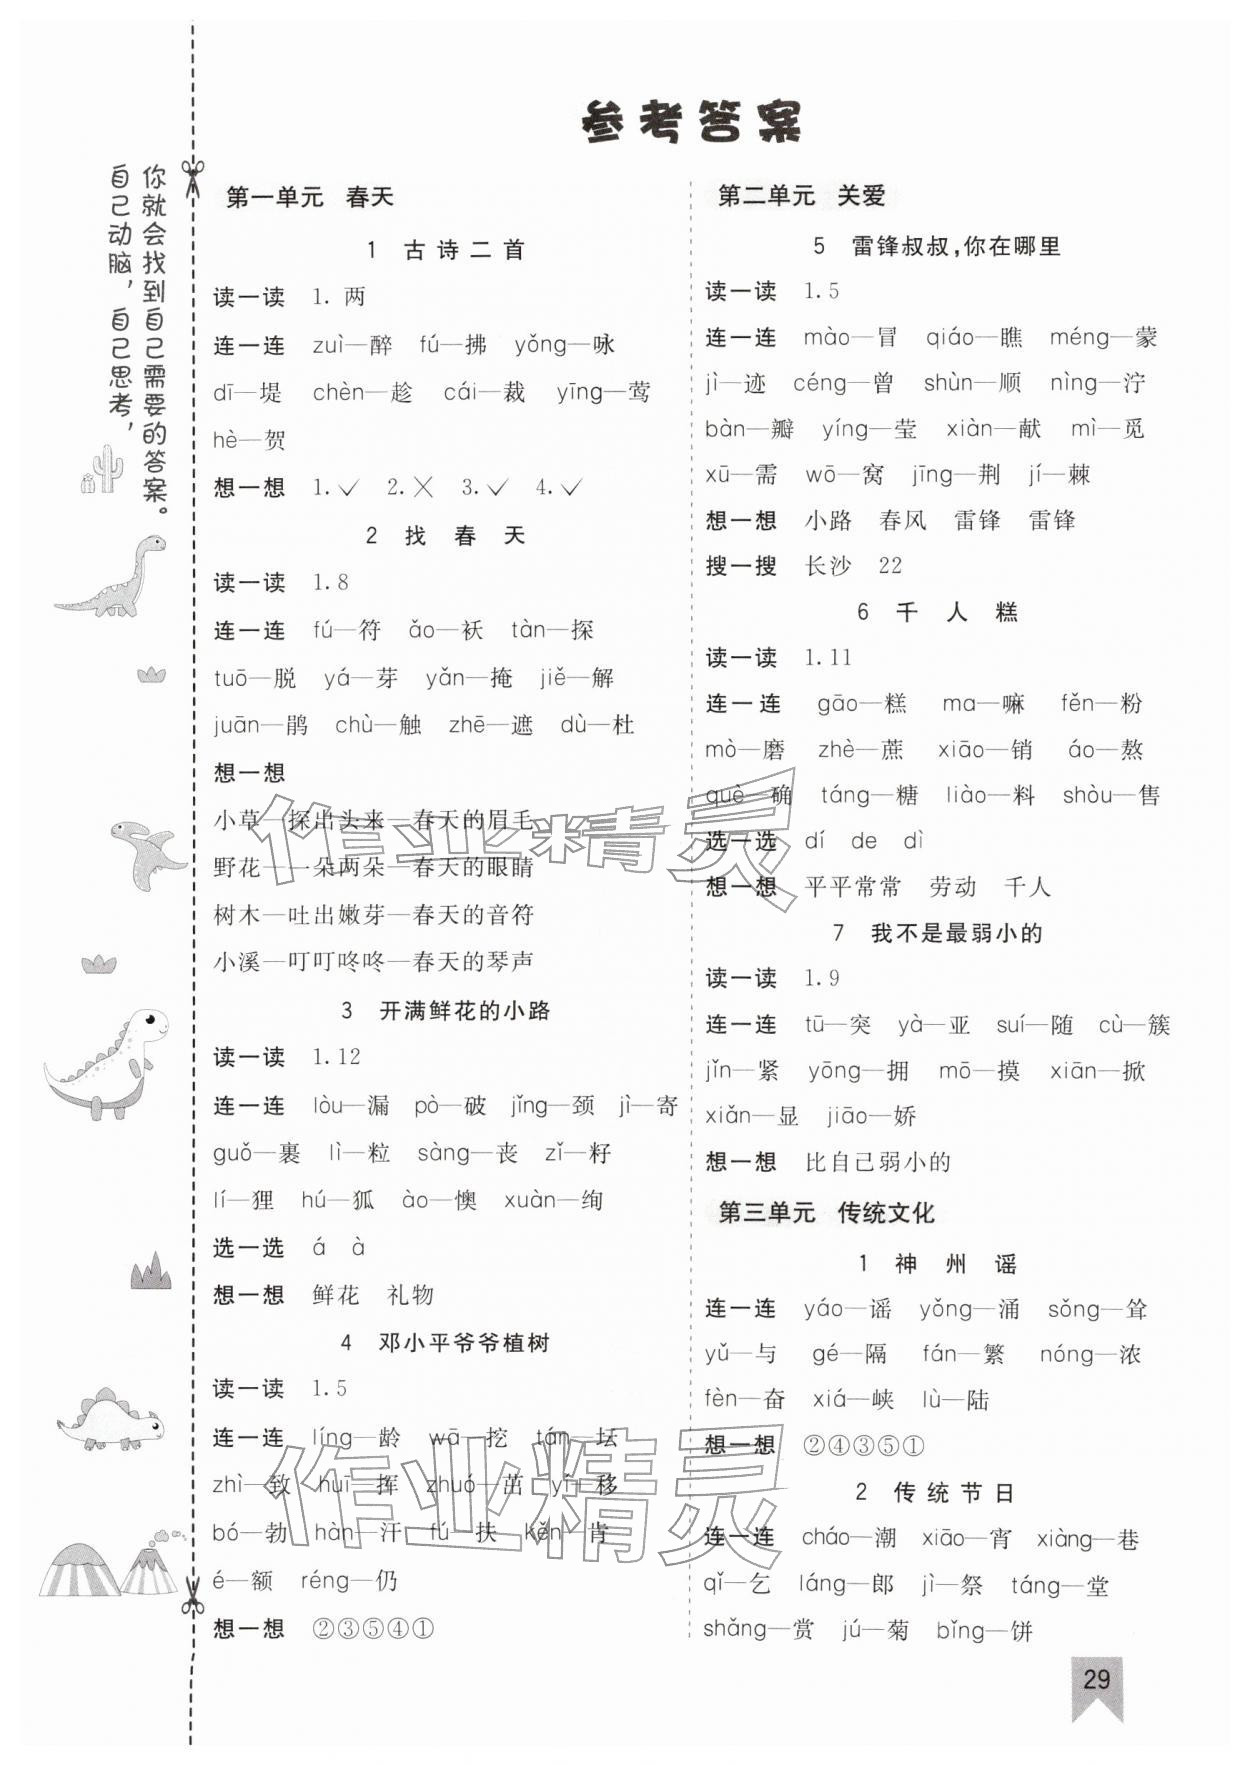 参考答案
你就会找到自己需要的答案。
自己动脑，自己思考，
第一单元 春天
1 古诗二首
读一读 1. 两
连一连 zuì—醉 fú—拂 yǒng—咏
dī—堤 chèn—趁 cái—裁 yīng—莺
hè—贺
想一想 1.✓ 2.✕ 3.✓ 4.✓
2 找春天
读一读 1.8
连一连 fú—符 ǎo—袄 tàn—探
tuō—脱 yá—芽 yǎn—掩 jiě—解
juān—鹃 chù—触 zhē—遮 dù—杜
想一想
小草—探出头来—春天的眉毛
野花—一朵两朵—春天的眼睛
树木—吐出嫩芽—春天的音符
小溪—叮叮咚咚—春天的琴声
3 开满鲜花的小路
读一读 1.12
连一连 lòu—漏 pò—破 jǐng—颈 jì—寄
guǒ—裹 lì—粒 sàng—丧 zǐ—籽
lí—狸 hú—狐 ào—懊 xuàn—绚
选一选 á à
想一想 鲜花 礼物
4 邓小平爷爷植树
读一读 1.5
连一连 líng—龄 wā—挖 tán—坛
zhì—致 huī—挥 zhuó—茁 yí—移
bó—勃 hàn—汗 fú—扶 kěn—肯
é—额 réng—仍
想一想 ②③⑤④①
第二单元 关爱
5 雷锋叔叔,你在哪里
读一读 1.5
连一连 mào—冒 qiáo—瞧 méng—蒙
jì—迹 céng—曾 shùn—顺 nìng—泞
bàn—瓣 yíng—莹 xiàn—献 mì—觅
xū—需 wō—窝 jīng—荆 jí—棘
想一想 小路 春风 雷锋 雷锋
搜一搜 长沙 22
6 千人糕
读一读 1.11
连一连 gāo—糕 ma—嘛 fěn—粉
mò—磨 zhè—蔗 xiāo—销 áo—熬
què—确 táng—糖 liào—料 shòu—售
选一选 dí de dì
想一想 平平常常 劳动 千人
7 我不是最弱小的
读一读 1.9
连一连 tū—突 yà—亚 suí—随 cù—簇
jǐn—紧 yōng—拥 mō—摸 xiān—掀
xiǎn—显 jiāo—娇
想一想 比自己弱小的
第三单元 传统文化
1 神州谣
连一连 yáo—谣 yǒng—涌 sǒng—耸
yǔ—与 gé—隔 fán—繁 nóng—浓
fèn—奋 xiá—峡 lù—陆
想一想 ②④③⑤①
2 传统节日
连一连 cháo—潮 xiāo—宵 xiàng—巷
qǐ—乞 láng—郎 jì—祭 táng—堂
shǎng—赏 jú—菊 bǐng—饼
29
作业精灵
作业精灵